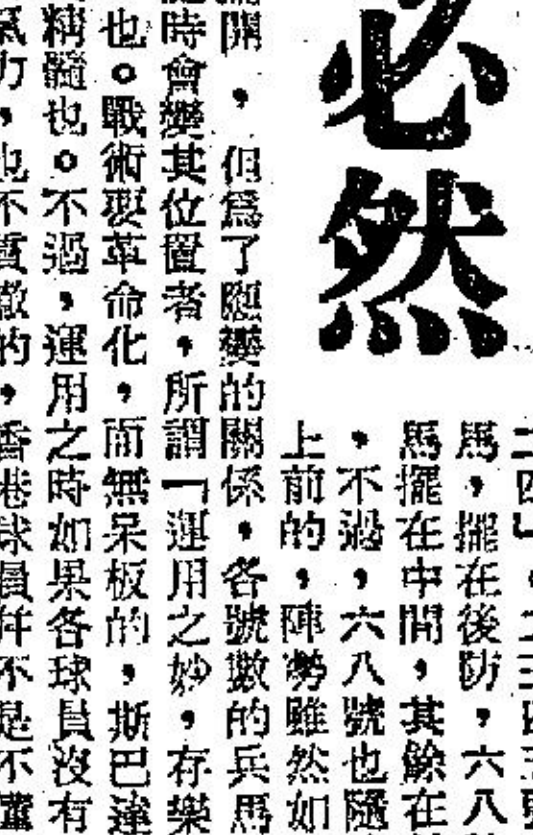 必然
二四」。二三四五
馬,擺在後防,六八
馬擺在中間,其餘在
,不過,六八號也隨
上前的,陣勢雖然如
關,但爲了應變的關係,各號數的兵馬
時會變其位置者,所謂「運用之妙,存樂
也。戰術要革命化,而無呆板的,斯巴達
精髓也。不過,運用之時如果各球員沒有
氣力,也不貫澈的,香港球員并不是不懂